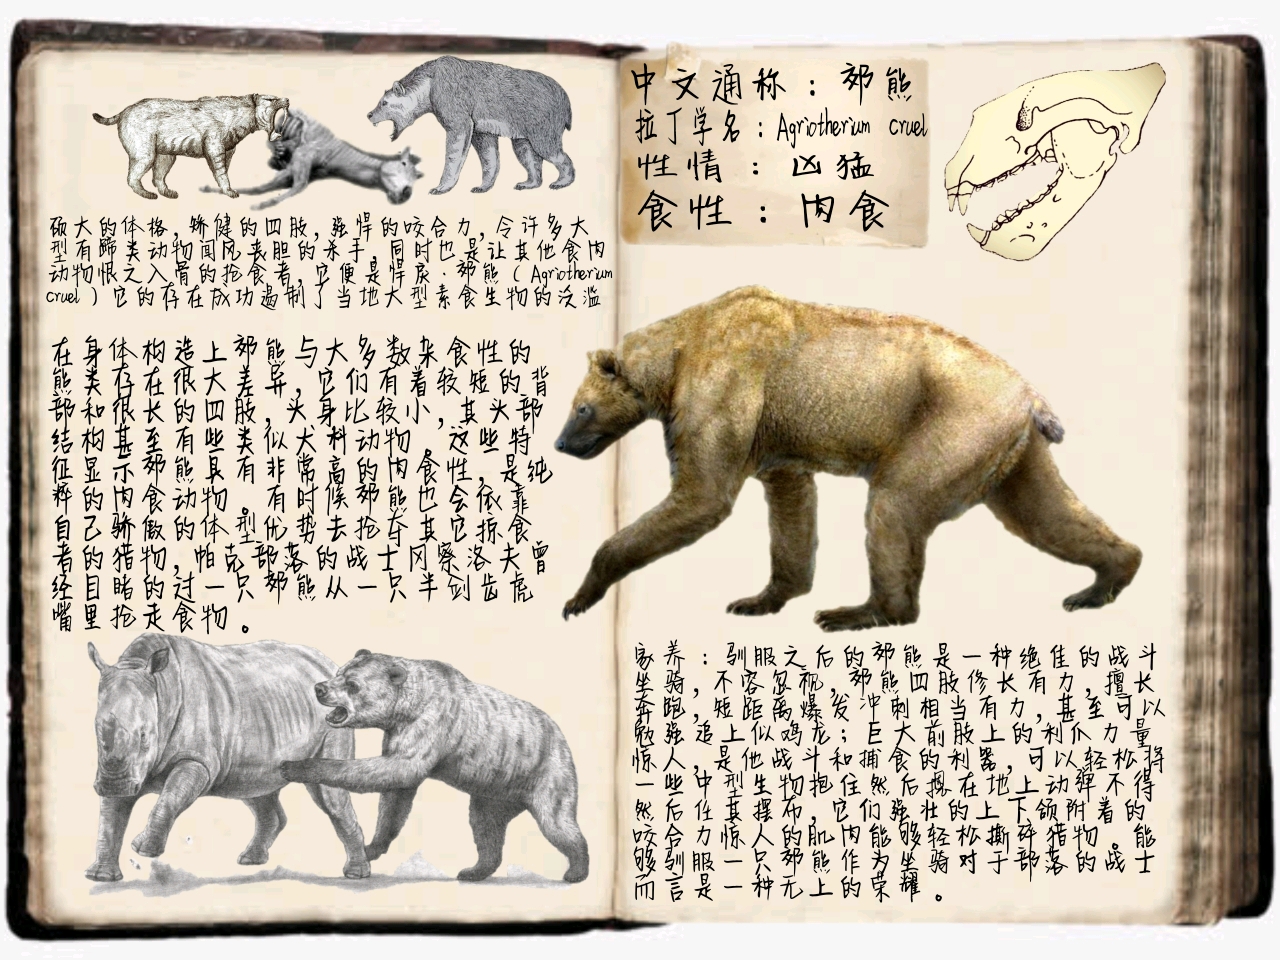 硕大的体格，矫健的四肢，强悍的咬合力，令许多大
型有蹄类动物闻风丧胆的杀手，同时也是让其他食肉
动物恨之入骨的抢食者，它便是悍戾·郊熊（Agriotherium
cruel）它的存在成功遏制了当地大型素食生物的泛滥
在身体构造上郊熊与大多数杂食性的
熊类存在很大差异，它们有着较短的背
部和很长的四肢，头身比较小，其头部
结构甚至有些类似犬科动物。这些特
征显示郊熊具有非常高的肉食性，是纯
粹的肉食动物。有时候郊熊也会依靠
自己骄傲的体型优势去抢夺其它掠食
者的猎物，帕克部落的战士冈察洛夫曾
经目睹的过一只郊熊从一只半剑齿虎
嘴里抢走食物。
中文通称：郊熊
拉丁学名：Agriotherium cruel
性情：凶猛
食性：肉食
家养：驯服之后的郊熊是一种绝佳的战斗
坐骑，不容忽视，郊熊四肢修长有力，擅长
奔跑，短距离爆发冲刺相当有力，甚至可以
勉强追上似鸡龙；巨大前肢上的利爪力量
惊人，是他战斗和捕食的利器，可以轻松将
一些中型生物抱住然后摁在地上动弹不得
然后任其摆布，它们强壮的上下颌附着的
咬合力惊人的肌肉能够轻松撕碎猎物。能
够驯服一只郊熊作为坐骑对于部落的战士
而言是一种无上的荣耀。